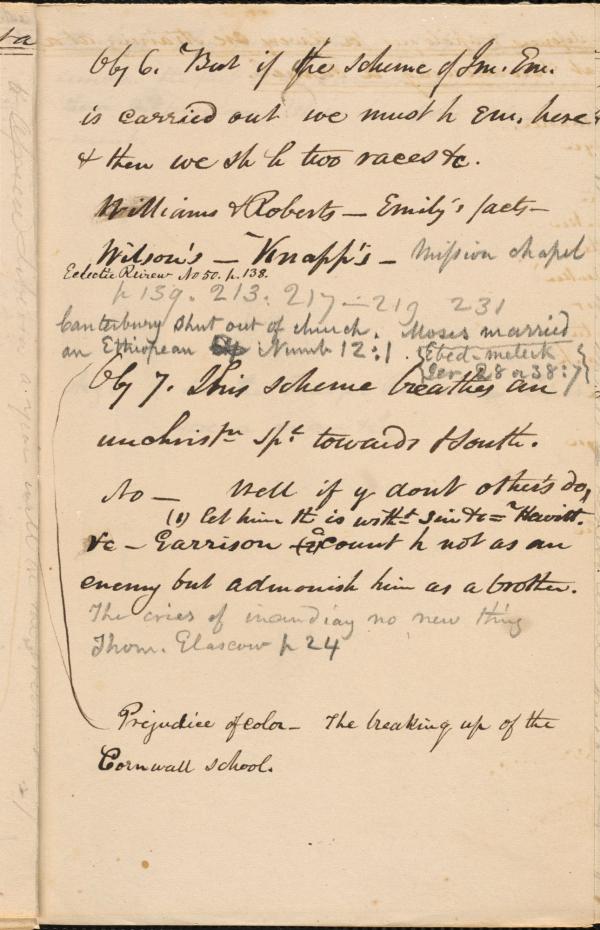 Obj 6. But if the scheme of Im. Em.
is carried out we must h Em. here
& then we sh h two races &c.
Williams & Roberts — Emily's facts —
Wilson's — Knapp's — Mission chapel
Eclectic Reivew No 50. p. 138.
p 139. 213. 217 — 219 231
Canterbury shut out of church. Moses married
an Ethiopean Numb 12:1. Ebed-meleck
Jer 28 or 38:7
Obj 7. This scheme breathes an
unchristn spt towards South.
No — Well if y dont other's do,
(1) let him tt is witht sin &c = Hewitt.
&c — Garrison count h not as an
enemy but admonish him as a brother.
The cries of incendiay no new thing
Thom. Glascow p 24
Prejudice of color — The breaking up of the
Cornwall school.